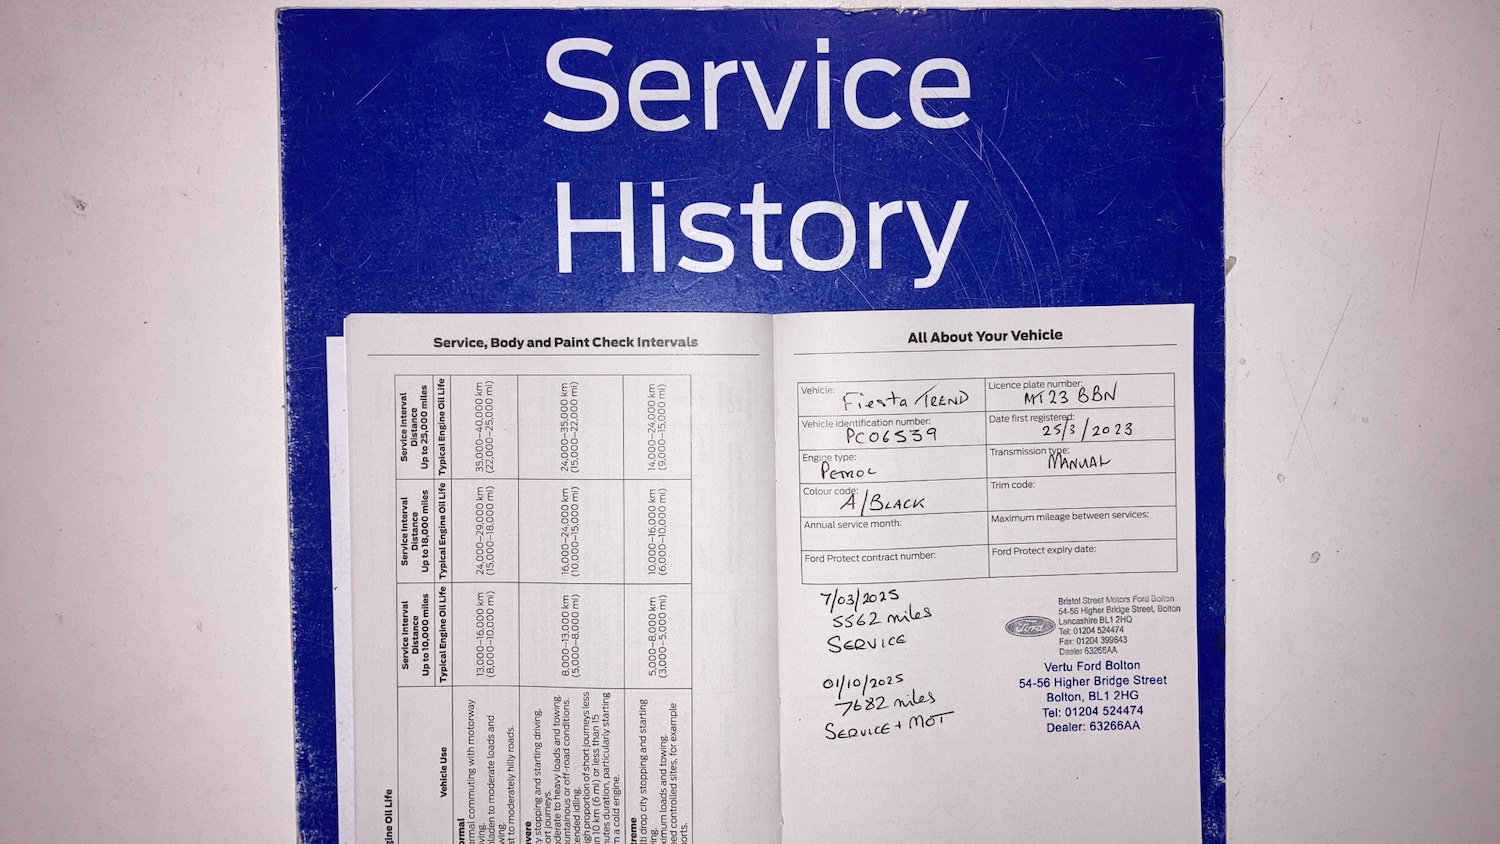 Service
History
Service, Body and Paint Check Intervals
Service Interval Distance Up to 10,000 miles
Service Interval Distance Up to 18,000 miles
Service Interval Distance Up to 25,000 miles
Vehicle Use
Typical Engine Oil Life
Typical Engine Oil Life
Typical Engine Oil Life
13,000–16,000 km
(8,000–10,000 mi)
24,000–29,000 km
(15,000–18,000 mi)
35,000–40,000 km
(22,000–25,000 mi)
8,000–13,000 km
(5,000–8,000 mi)
16,000–24,000 km
(10,000–15,000 mi)
24,000–35,000 km
(15,000–22,000 mi)
5,000–8,000 km
(3,000–5,000 mi)
10,000–16,000 km
(6,000–10,000 mi)
14,000–24,000 km
(9,000–15,000 mi)
commuting with motorway
to moderate loads and
to moderately hilly roads.
stopping and starting driving.
journeys.
to heavy loads and towing.
or off-road conditions.
idling.
proportion of short journeys less
10 km (6 mi) or less than 15
duration, particularly starting
a cold engine.
drop city stopping and starting
loads and towing.
controlled sites, for example
Oil Life
All About Your Vehicle
Vehicle: Fiesta TREND
Licence plate number: MT23 BBN
Vehicle identification number: PC06539
Date first registered: 25/3/2023
Engine type: PETROL
Transmission type: MANUAL
Colour code: A/BLACK
Trim code:
Annual service month:
Maximum mileage between services:
Ford Protect contract number:
Ford Protect expiry date:
7/03/2025
5562 miles
SERVICE
01/10/2025
7682 miles
SERVICE + MOT
Ford
Bristol Street Motors Ford Bolton
54-56 Higher Bridge Street, Bolton
Lancashire BL1 2HQ
Tel: 01204 524474
Fax: 01204 399643
Dealer 63266AA
Vertu Ford Bolton
54-56 Higher Bridge Street
Bolton, BL1 2HG
Tel: 01204 524474
Dealer: 63266AA